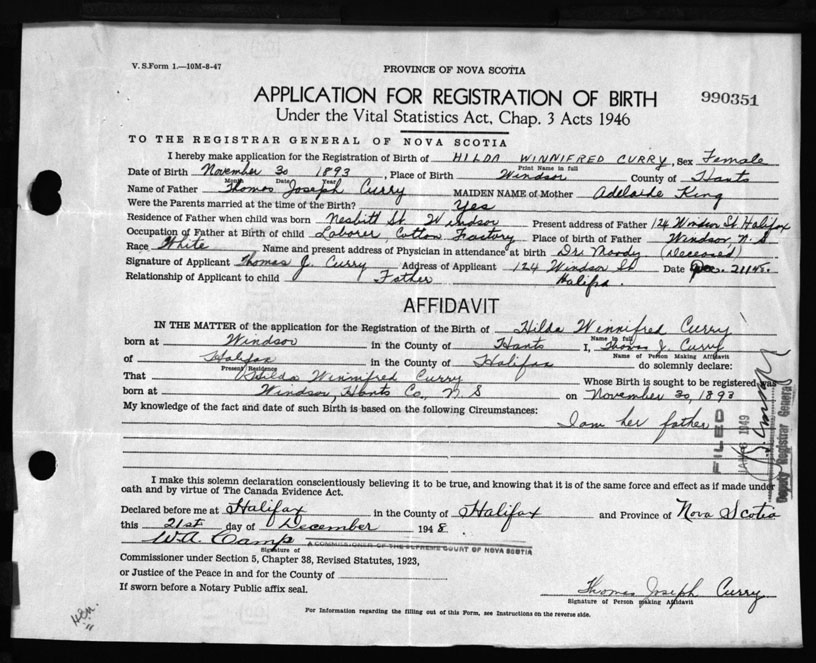 V. S.Form 1.—10M-8-47
PROVINCE OF NOVA SCOTIA
APPLICATION FOR REGISTRATION OF BIRTH 990351
Under the Vital Statistics Act, Chap. 3 Acts 1946
TO THE REGISTRAR GENERAL OF NOVA SCOTIA
I hereby make application for the Registration of Birth of HILDA WINNIFRED CURRY, Sex Female
Print Name in full
Date of Birth November 30 1893, Place of Birth Windsor County of Hants
Month Date Year
Name of Father Thomas Joseph Curry MAIDEN NAME of Mother Adelaide King
Were the Parents married at the time of Birth? Yes
Residence of Father when child was born Nesbitt St. Windsor Present address of Father 124 Windsor St Halifax
Occupation of Father at Birth of child Laborer, Cotton Factory Place of birth of Father Windsor, N. S
Race White Name and present address of Physician in attendance at birth Dr. Moody (Deceased)
Signature of Applicant Thomas J. Curry Address of Applicant 124 Windsor St Date Dec. 21
Relationship of Applicant to child Father Halifax.
AFFIDAVIT
IN THE MATTER of the application for the Registration of the Birth of Hilda Winnifred Curry
Name in full
born at Windsor in the County of Hants I, Thomas J. Curry
Name of Person Making Affidavit
of Halifax in the County of Halifax do solemnly declare:
Present Residence
That Hilda Winnifred Curry Whose Birth is sought to be registered was
born at Windsor, Hants Co, N. S on November 30, 1893
My knowledge of the fact and date of such Birth is based on the following Circumstances:
I am her father
FILED
1949
Deputy Registrar General
I make this solemn declaration conscientiously believing it to be true, and knowing that it is of the same force and effect as if made under
oath and by virtue of The Canada Evidence Act.
Declared before me at Halifax in the County of Halifax and Province of Nova Scotia
this 21st day of December 1948
W.A. Camp A COMMISSIONER OF THE SUPREME COURT OF NOVA SCOTIA
Signature of
Commissioner under Section 5, Chapter 38, Revised Statutes, 1923,
or Justice of the Peace in and for the County of
If sworn before a Notary Public affix seal.
Thomas Joseph Curry
Signature of Person making Affidavit
For Information regarding the filling out of this Form, see Instructions on the reverse side.